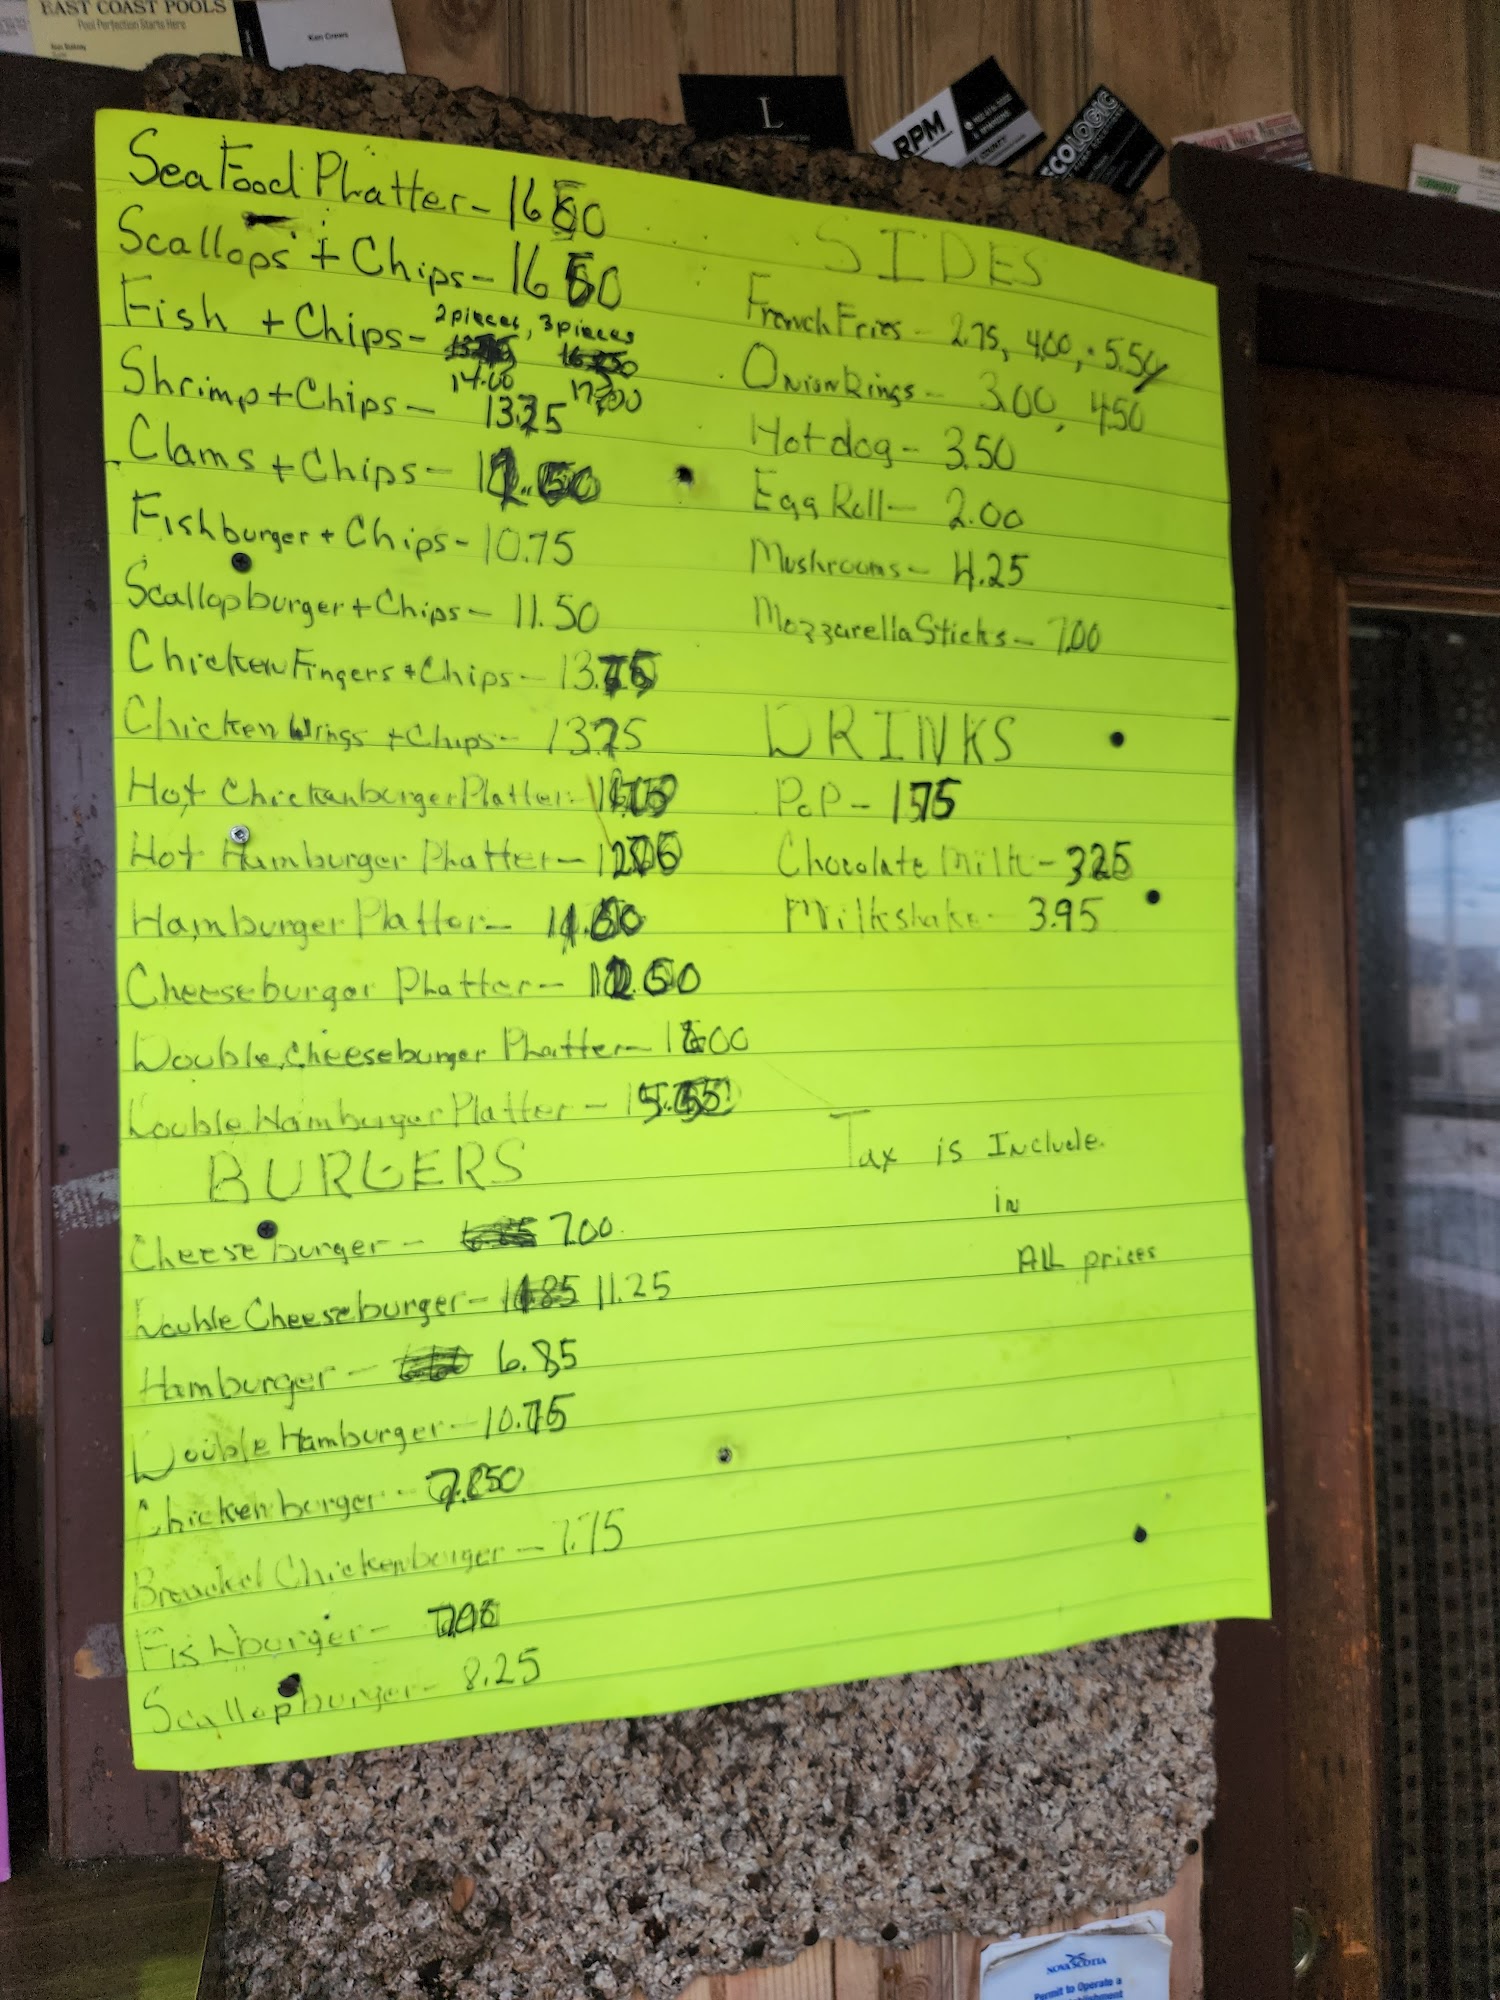 EAST COAST POOLS
Pool Perfection Starts Here
L
RPM
ECOLOGIC
Sea Food Platter - 16.50
Scallops + Chips - 16.50
Fish + Chips - 2 pieces, 3 pieces
14.00 17.00
Shrimp + Chips - 13.75
Clams + Chips -
Fishburger + Chips - 10.75
Scallopburger + Chips - 11.50
Chicken Fingers + Chips - 13.75
Chicken Wings + Chips - 13.75
Hot Chickenburger Platter -
Hot Hamburger Platter -
Hamburger Platter -
Cheeseburger Platter -
Double Cheeseburger Platter -
Double Hamburger Platter -
BURGERS
Cheeseburger - 7.00
Double Cheeseburger - 11.25
Hamburger - 6.85
Double Hamburger - 10.75
Chickenburger -
Breaded Chickenburger - 7.75
Fishburger -
Scallopburger - 8.25
SIDES
French Fries - 2.75, 4.00, 5.50
Onion Rings - 3.00, 4.50
Hot dog - 3.50
Egg Roll - 2.00
Mushrooms - 4.25
Mozzarella Sticks - 7.00
DRINKS
PoP - 1.75
Chocolate Milk - 3.25
Milkshake - 3.95
Tax is Include
in
ALL prices
NOVA SCOTIA
Permit to Operate a